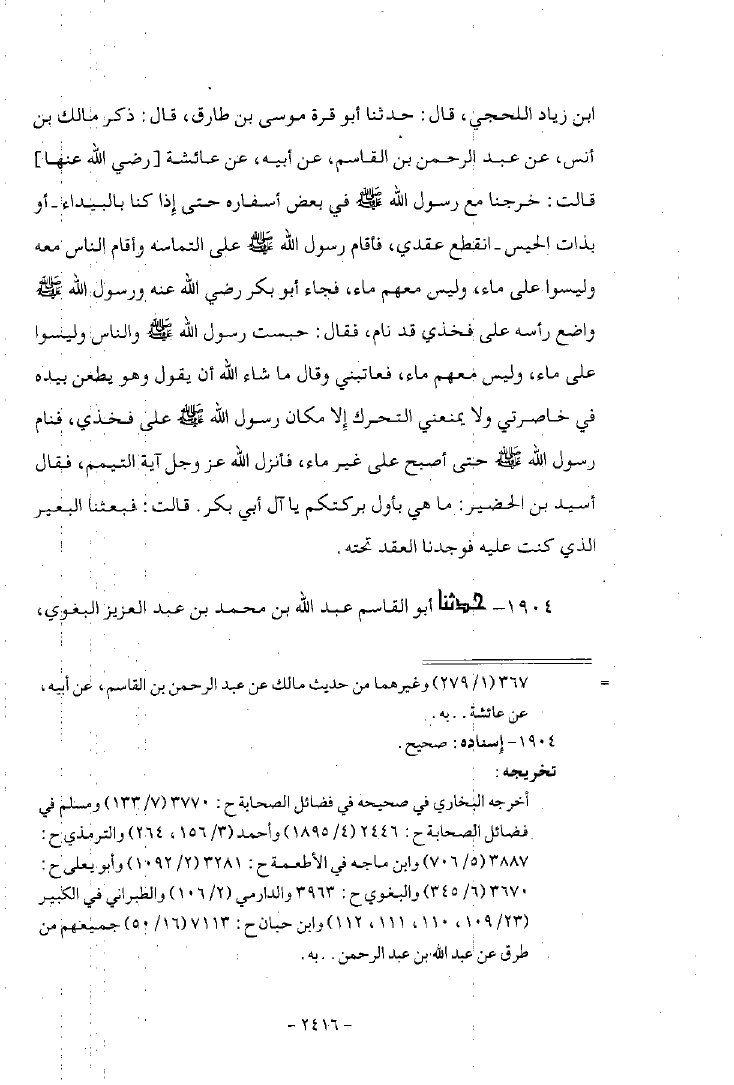 ابن زياد اللحجي، قال: حدثنا أبو قرة موسى بن طارق، قال: ذكر مالك بن
أنس، عن عبد الرحمن بن القاسم، عن أبيه، عن عائشة [رضي الله عنها]
قالت: خرجنا مع رسول الله ﷺ في بعض أسفاره حتى إذا كنا بالبيداء - أو
بذات الحيس - انقطع عقدي، فأقام رسول الله ﷺ على التماسه وأقام الناس معه
وليسوا على ماء، وليس معهم ماء، فجاء أبو بكر رضي الله عنه ورسول الله ﷺ
واضع رأسه على فخذي قد نام، فقال: حبست رسول الله ﷺ والناس وليسوا
على ماء، وليس معهم ماء، فعاتبني وقال ما شاء الله أن يقول وهو يطعن بيده
في خاصرتي ولا يمنعني التحرك إلا مكان رسول الله ﷺ على فخذي، فنام
رسول الله ﷺ حتى أصبح على غير ماء، فأنزل الله عز وجل آية التيمم، فقال
أسيد بن الحضير: ما هي بأول بركتكم يا آل أبي بكر. قالت: فبعثنا البعير
الذي كنت عليه فوجدنا العقد تحته.
١٩٠٤ - حدثنا أبو القاسم عبد الله بن محمد بن عبد العزيز البغوي،
= ٣٦٧ (٢٧٩/١) وغيرهما من حديث مالك عن عبد الرحمن بن القاسم، عن أبيه،
عن عائشة . . به.
١٩٠٤ - إسناده: صحيح.
تخريجه:
أخرجه البخاري في صحيحه في فضائل الصحابة ح: ٣٧٧٠ (١٣٣/٧) ومسلم في
فضائل الصحابة ح: ٢٤٤٦ (١٨٩٥/٤) وأحمد (١٥٦/٣، ٢٦٤) والترمذي ح:
٣٨٨٧ (٧٠٦/٥) وابن ماجه في الأطعمة ح: ٣٢٨١ (١٠٩٢/٢) وأبو يعلى ح:
٣٦٧٠ (٣٤٥/٦) والبغوي ح: ٣٩٦٣ والدارمي (١٠٦/٢) والطبراني في الكبير
(١٠٩/٢٣، ١١٠، ١١١، ١١٢) وابن حبان ح: ٧١١٣ (٥٠/١٦) جميعهم من
طرق عن عبد الله بن عبد الرحمن . . به.
- ٢٤١٦ -